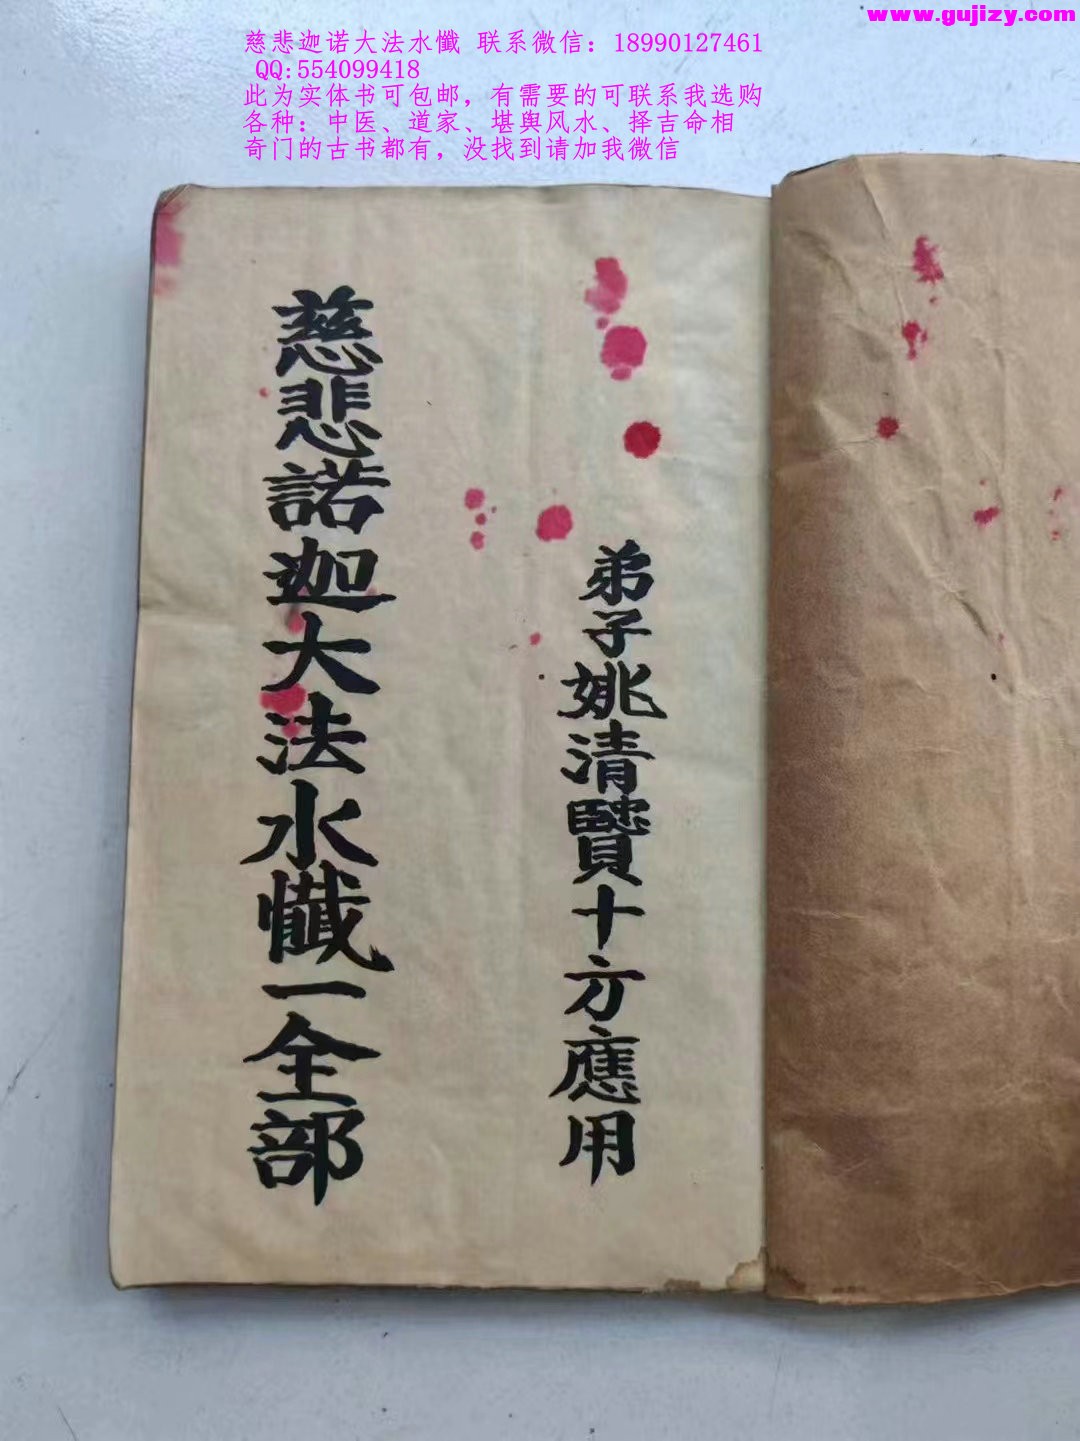 www.gujizy.com
慈悲迦诺大法水懺 联系微信：18990127461
QQ:554099418
此为实体书可包邮，有需要的可联系我选购
各种：中医、道家、堪舆风水、择吉命相
奇门的古书都有，没找到请加我微信
弟子姚清賢十方應用
慈悲諾迦大法水懺一全部